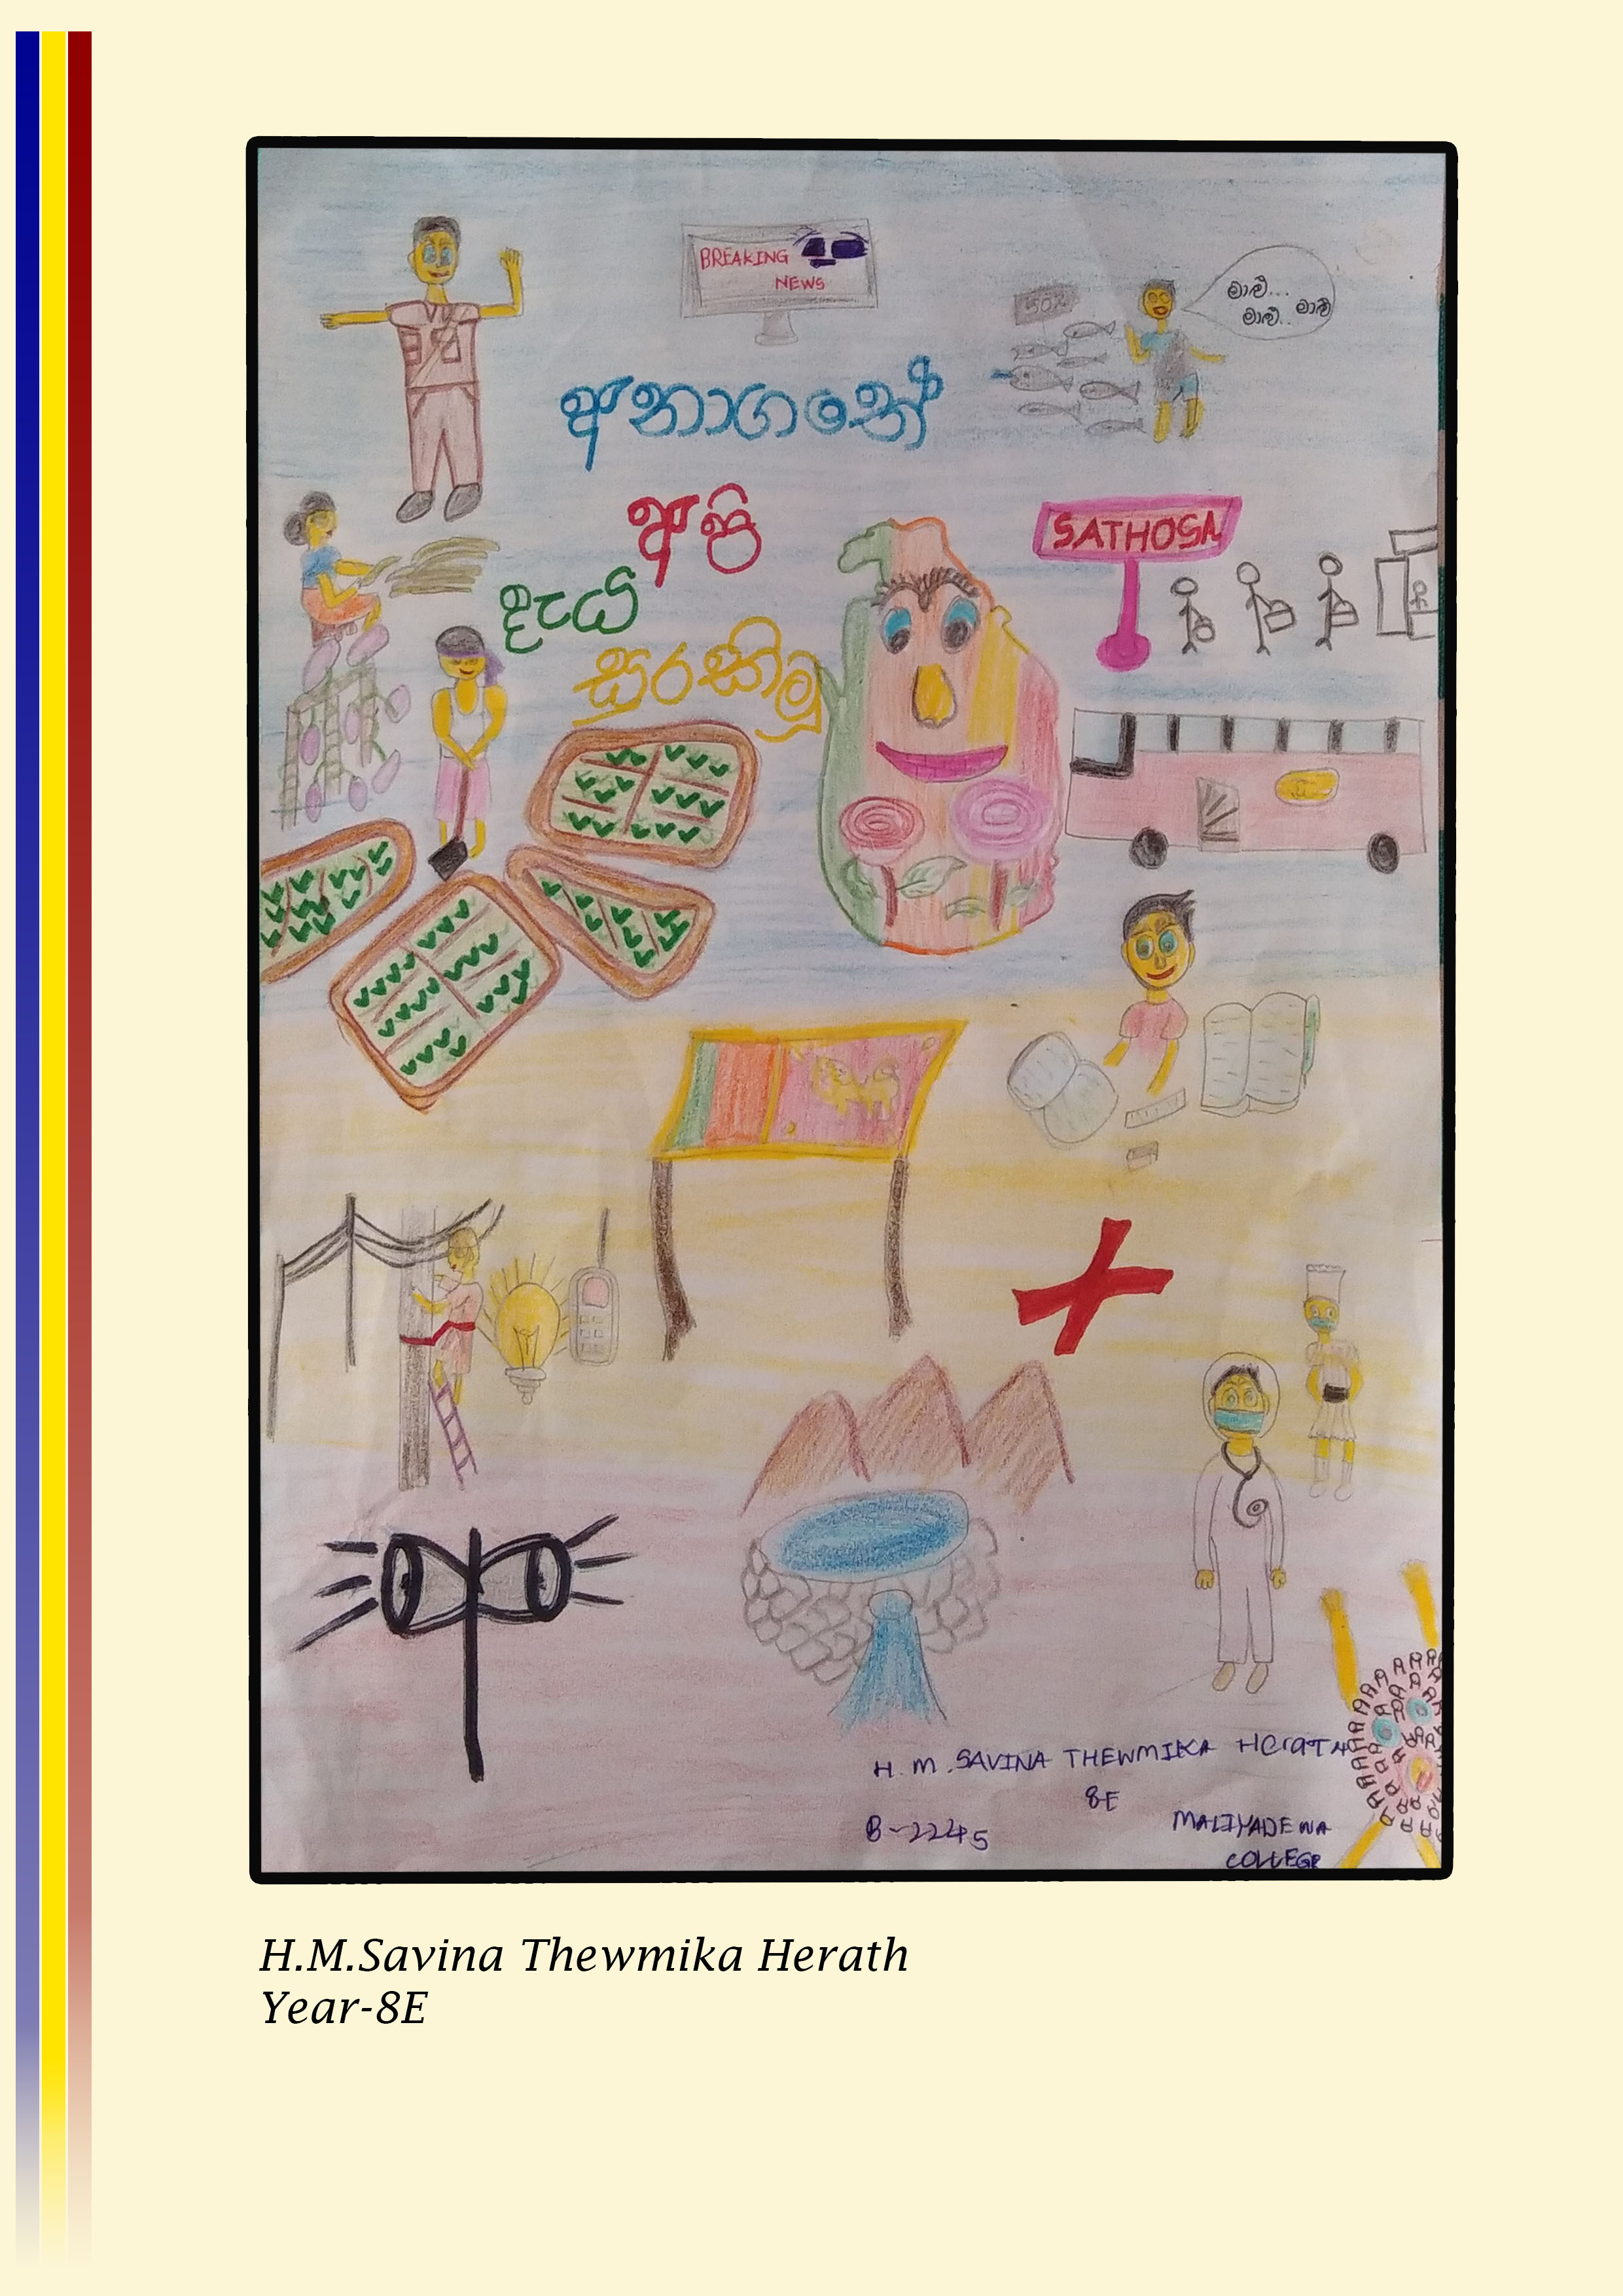 BREAKING
NEWS
50%
මාළු...
මාළු.. මාළු
අනාගතේ
අපි
දැයි
සුරකිමු
SATHOSA
H. M. SAVINA THEWMIKA HeraTH
8E
B-2245
MALIYADEWA
COLLEGE
H.M.Savina Thewmika Herath
Year-8E